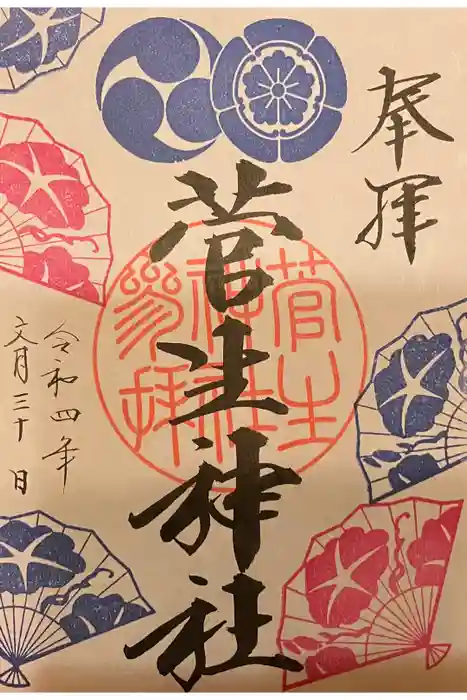 奉拝
菅生神社
菅生
神社
参拝
令和四年
文月三十日